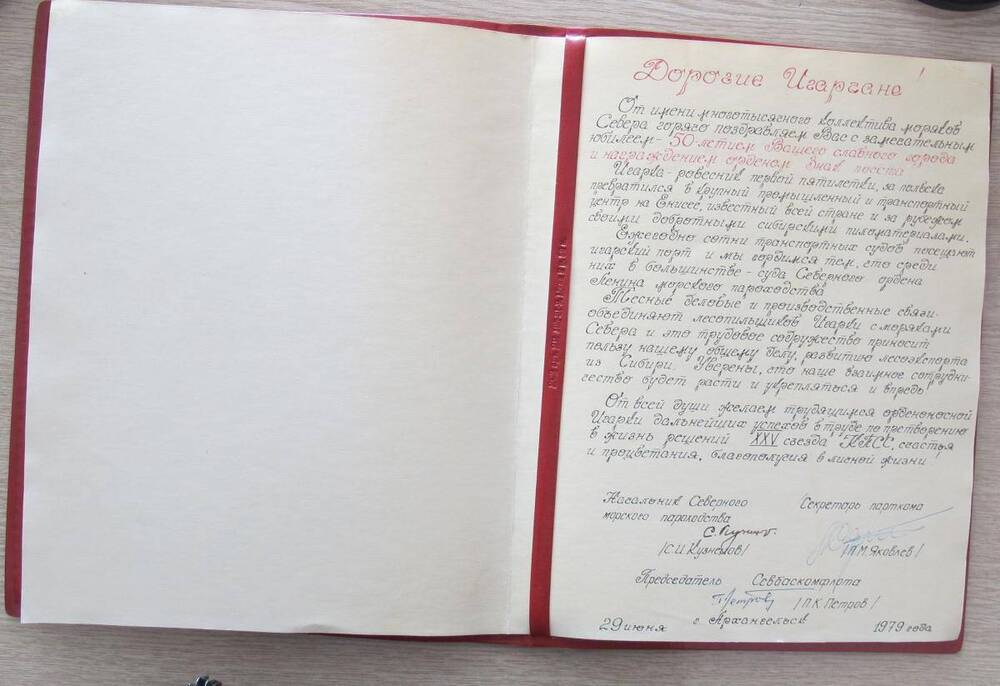 Дорогие Игарчане!
От имени многотысячного коллектива моряков
Севера горячо поздравляем Вас с замечательным
юбилеем - 50-летием Вашего славного города
и награждением орденом Знак почета
Игарка - ровесник первой пятилетки, за полвека
превратился в крупный промышленный и транспортный
центр на Енисее, известный всей стране и за рубежом
своими добротными сибирскими пиломатериалами.
Ежегодно сотни транспортных судов посещают
игарский порт и мы гордимся тем, что среди
них в большинстве - суда Северного ордена
Ленина морского пароходства
Тесные деловые и производственные связи
объединяют лесопильщиков Игарки с моряками
Севера и это трудовое содружество приносит
пользу нашему общему делу, развитию лесоэкспорта
из Сибири. Уверены, что наше взаимное сотрудни-
чество будет расти и укрепляться и впредь!
От всей души желаем трудящимся орденоносной
Игарки дальнейших успехов в труде по претворению
в жизнь решений XXV съезда КПСС, счастья
и процветания, благополучия в личной жизни!
Начальник Северного Секретарь парткома
морского пароходства
/С.И.Кузнецов/ /Яковлев/
Председатель Севбаскомфлота
/П.К.Петров/
29 июня г. Архангельск 1979 года